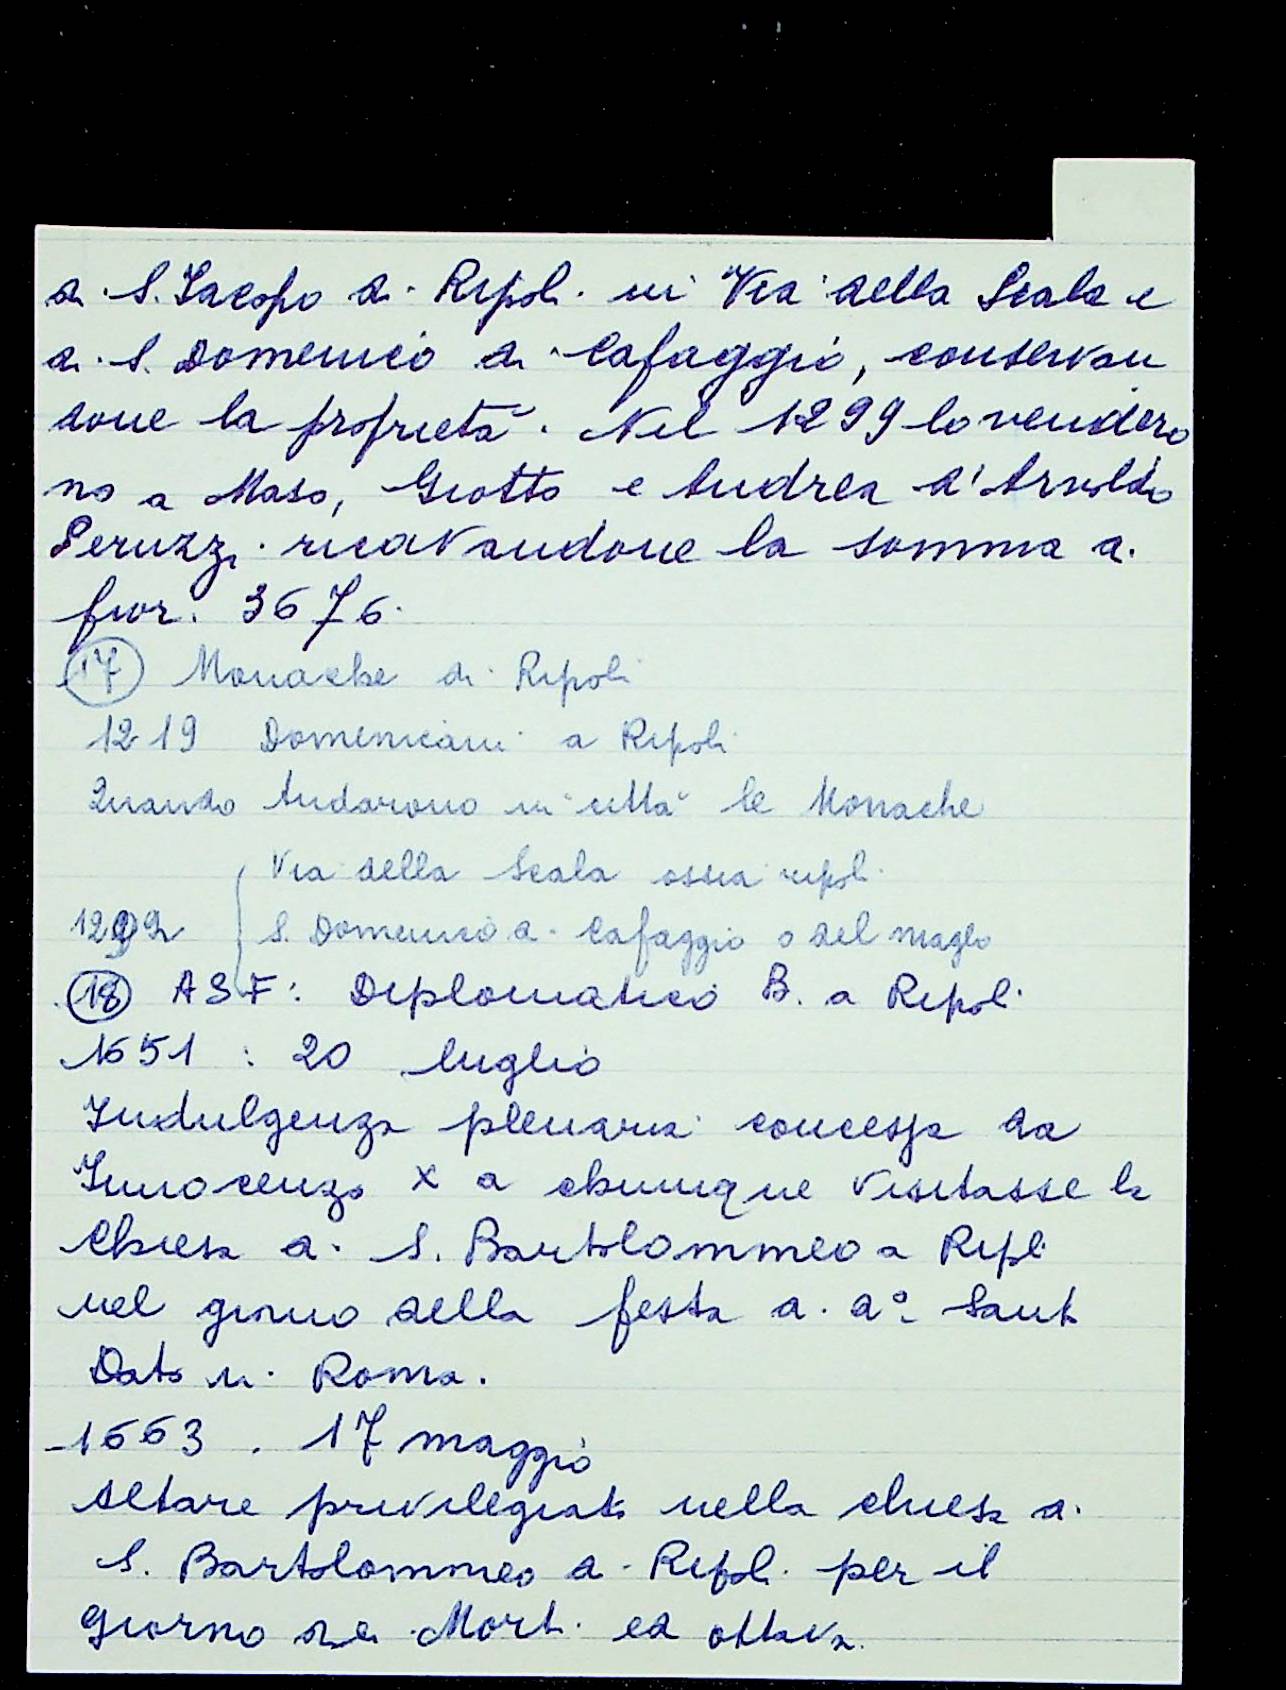 di S. Iacopo di Ripoli in Via della Scala e
di S. Domenico di Cafaggio, conservan
done la proprietà. Nel 1299 lo vendero
no a Maso, Giotto e Andrea d'Arnoldo
Peruzzi ricavandone la somma di
fior. 3676.
(17) Monache di Ripoli
1219 Domenicani a Ripoli
Quando Andarono in città le Monache
Via della Scala ossia ripoli
1292 S. Domenico di Cafaggio o del maglio
(18) ASF: Diplomatico B. a Ripoli
1651 : 20 luglio
Indulgenza plenaria concessa da
Innocenzo X a chiunque visitasse la
Chiesa di S. Bartolommeo a Ripoli
nel giorno della festa di do Santo
Dato in Roma.
-1663. 17 maggio
Altare privilegiato nella chiesa di
S. Bartolommeo a Ripoli per il
Giorno dei Morti ed ottava.